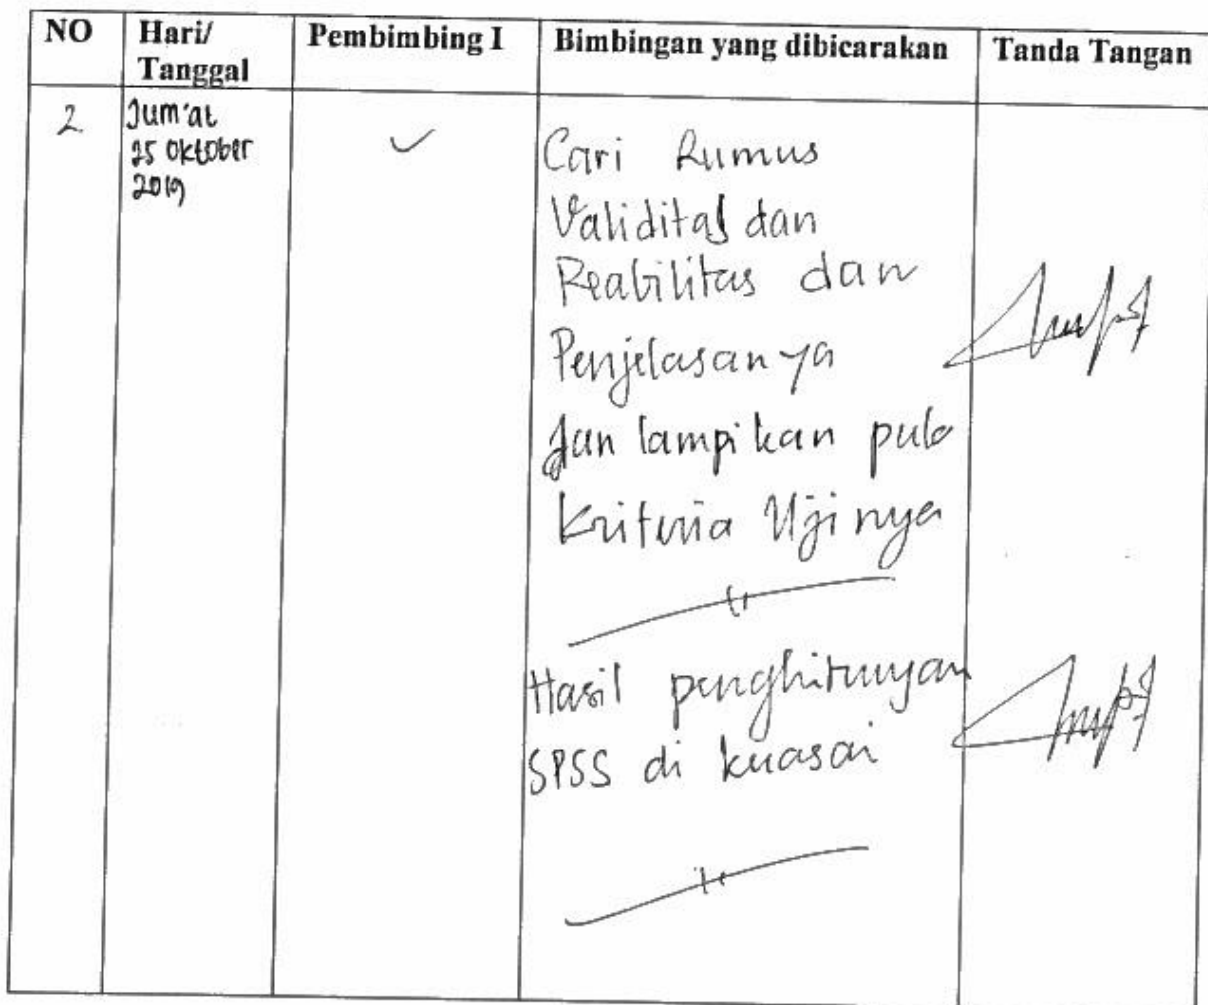 NO Hari/ Pembimbing I Bimbingan yang dibicarakan Tanda Tangan
Tanggal
2 Jum'at
25 Oktober
2019
Cari Rumus
Validitas dan
Reabilitas dan
Penjelasanya
dan lampikan pula
Kriteria Ujinya
Hasil penghitungan
SPSS di kuasai